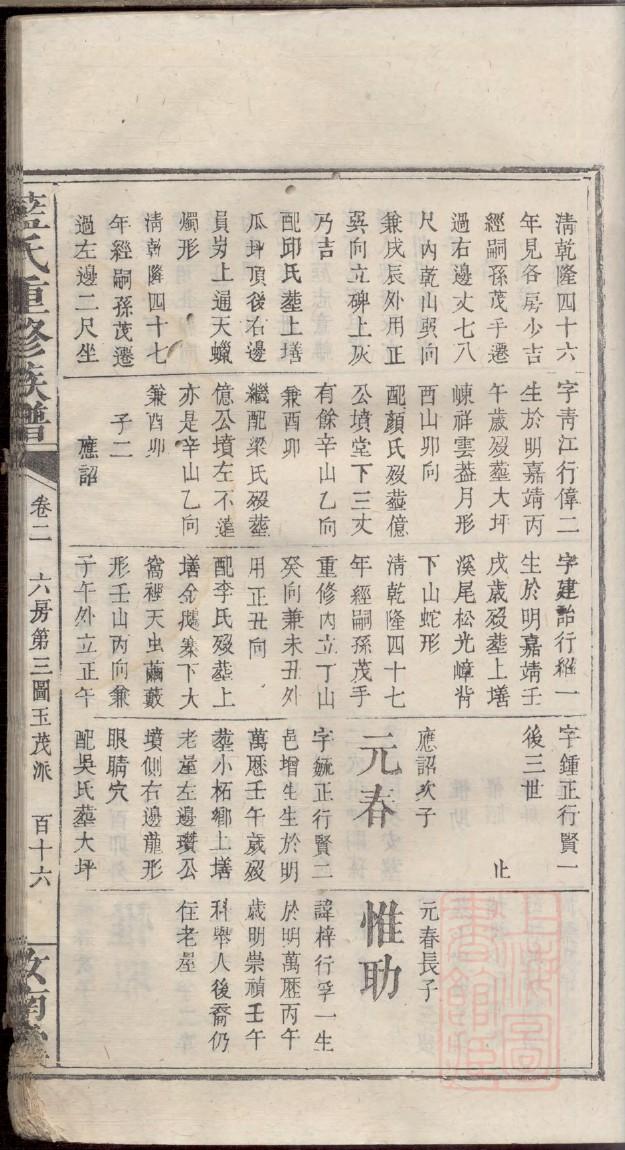 清乾隆四十六
年見各房少吉
經嗣孫茂手遷
過右邊丈七八
尺內乾山巽向
兼戌辰外用正
巽向立碑上灰
乃吉
配邱氏塟上墡
瓜坪頂後右邊
員岃上逼天蠟
燭形
清乾隆四十七
年經嗣孫茂遷
過左邊二尺坐
字靑江行偉二
生於明嘉靖丙
午歲歿塟大坪
崠祥雲葢月形
酉山卯向
配顏氏歿塟億
公墳堂下三丈
有餘辛山乙向
兼酉卯
繼配梁氏歿塟
億公墳左不遠
亦是辛山乙向
兼酉卯
子二
應詔
字建詒行維一
生於明嘉靖壬
戌歲歿塟上墡
溪尾松光嶂背
下山蛇形
清乾隆四十七
年經嗣孫茂手
重修內立丁山
癸向兼未丑外
用正丑向
配李氏歿塟上
墡余搋寨下大
窩裡天虫繭藪
形壬山丙向兼
子午外立正午
字鍾正行賢一
後三世 止
應詔次子
元春
字毓正行賢二
邑增生生於明
萬厯壬午歲歿
塟小柘鄉上墡
老崖左邊瓚公
墳側右邊龍形
眼睛穴
配吳氏塟大坪
元春長子
惟助
諱梓行孚一生
於明萬厯丙午
歲明崇禎壬午
科舉人後裔仍
在老屋
藍氏重修族譜
卷二 六房第三圖玉茂派 百十六
汝南堂